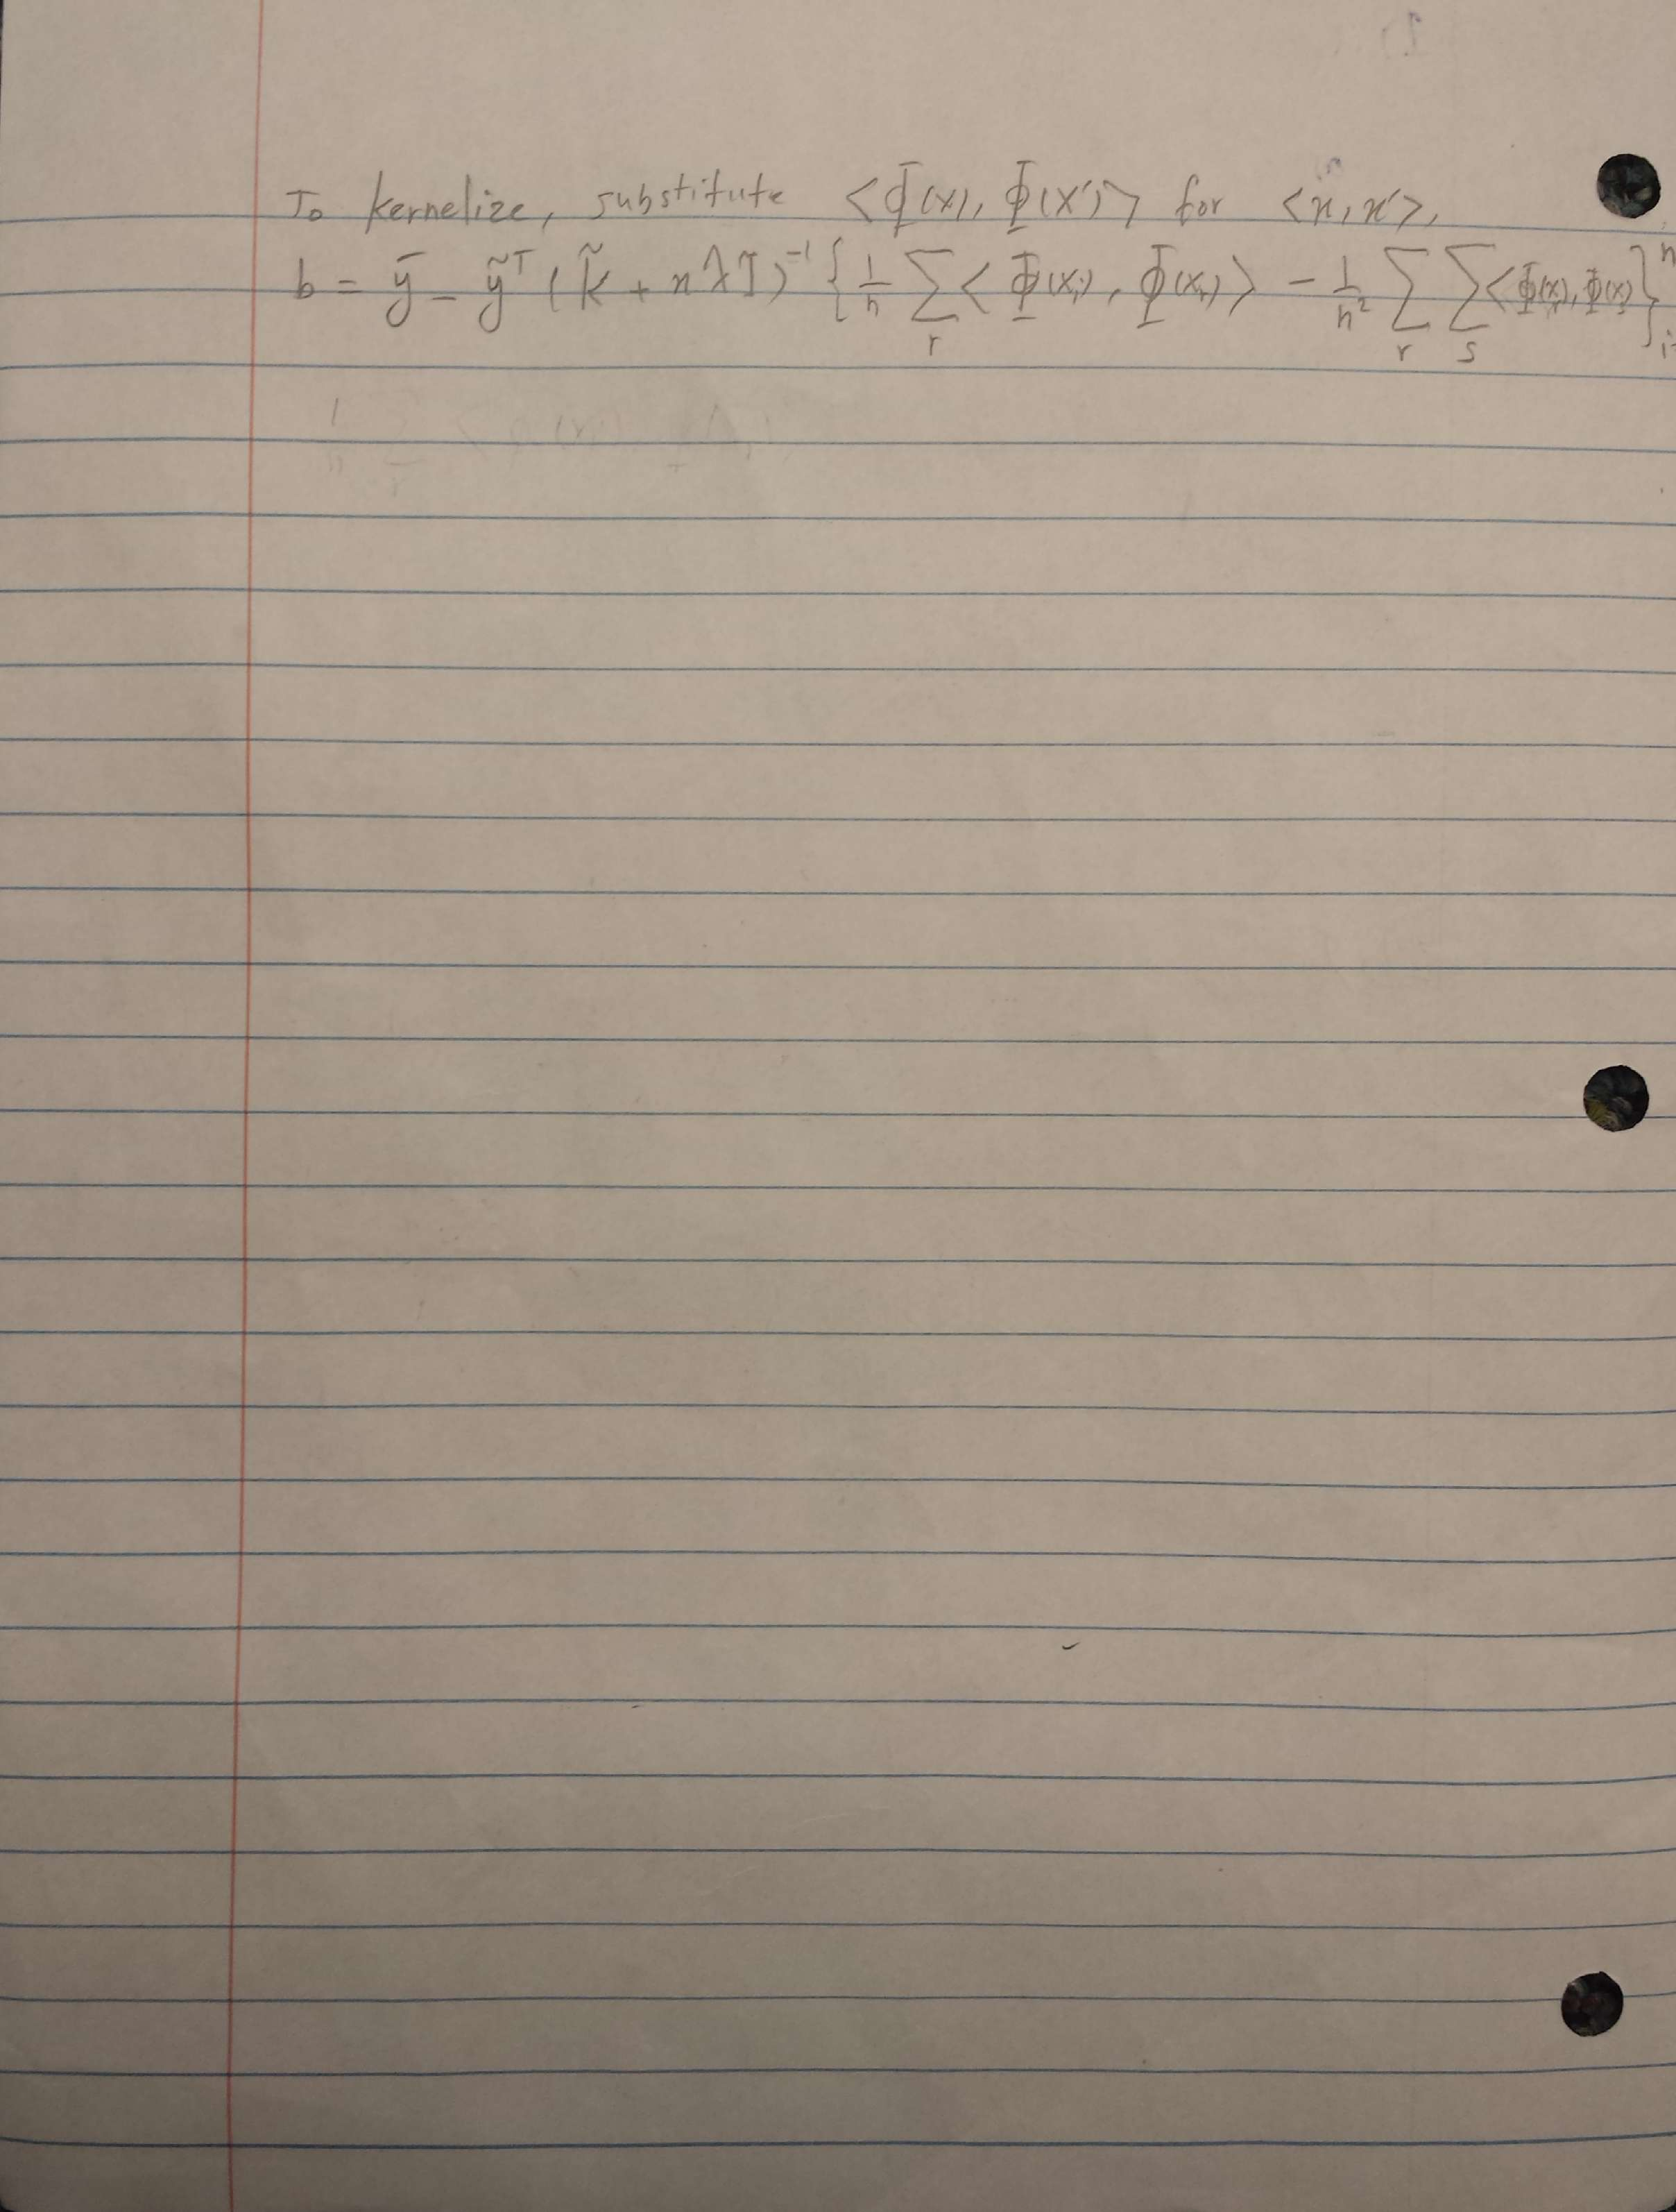 To kernelize, substitute <Φ(x), Φ(x')> for <x, x'>,
b = ȳ - ỹᵀ (K̃ + nλI)⁻¹ {1/n Σ_r <Φ(x_i), Φ(x_r)> - 1/n² Σ_r Σ_s <Φ(x_r), Φ(x_s)>}ⁿ_i